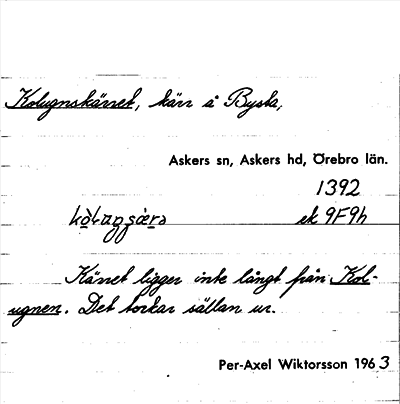 Kolugnskärret, kärr å Bysta,
Askers sn, Askers hd, Örebro län.
1392
ek 9F9h
Kärret ligger inte långt från Kol-
ugnen. Det torkar sällan ur.
Per-Axel Wiktorsson 1963